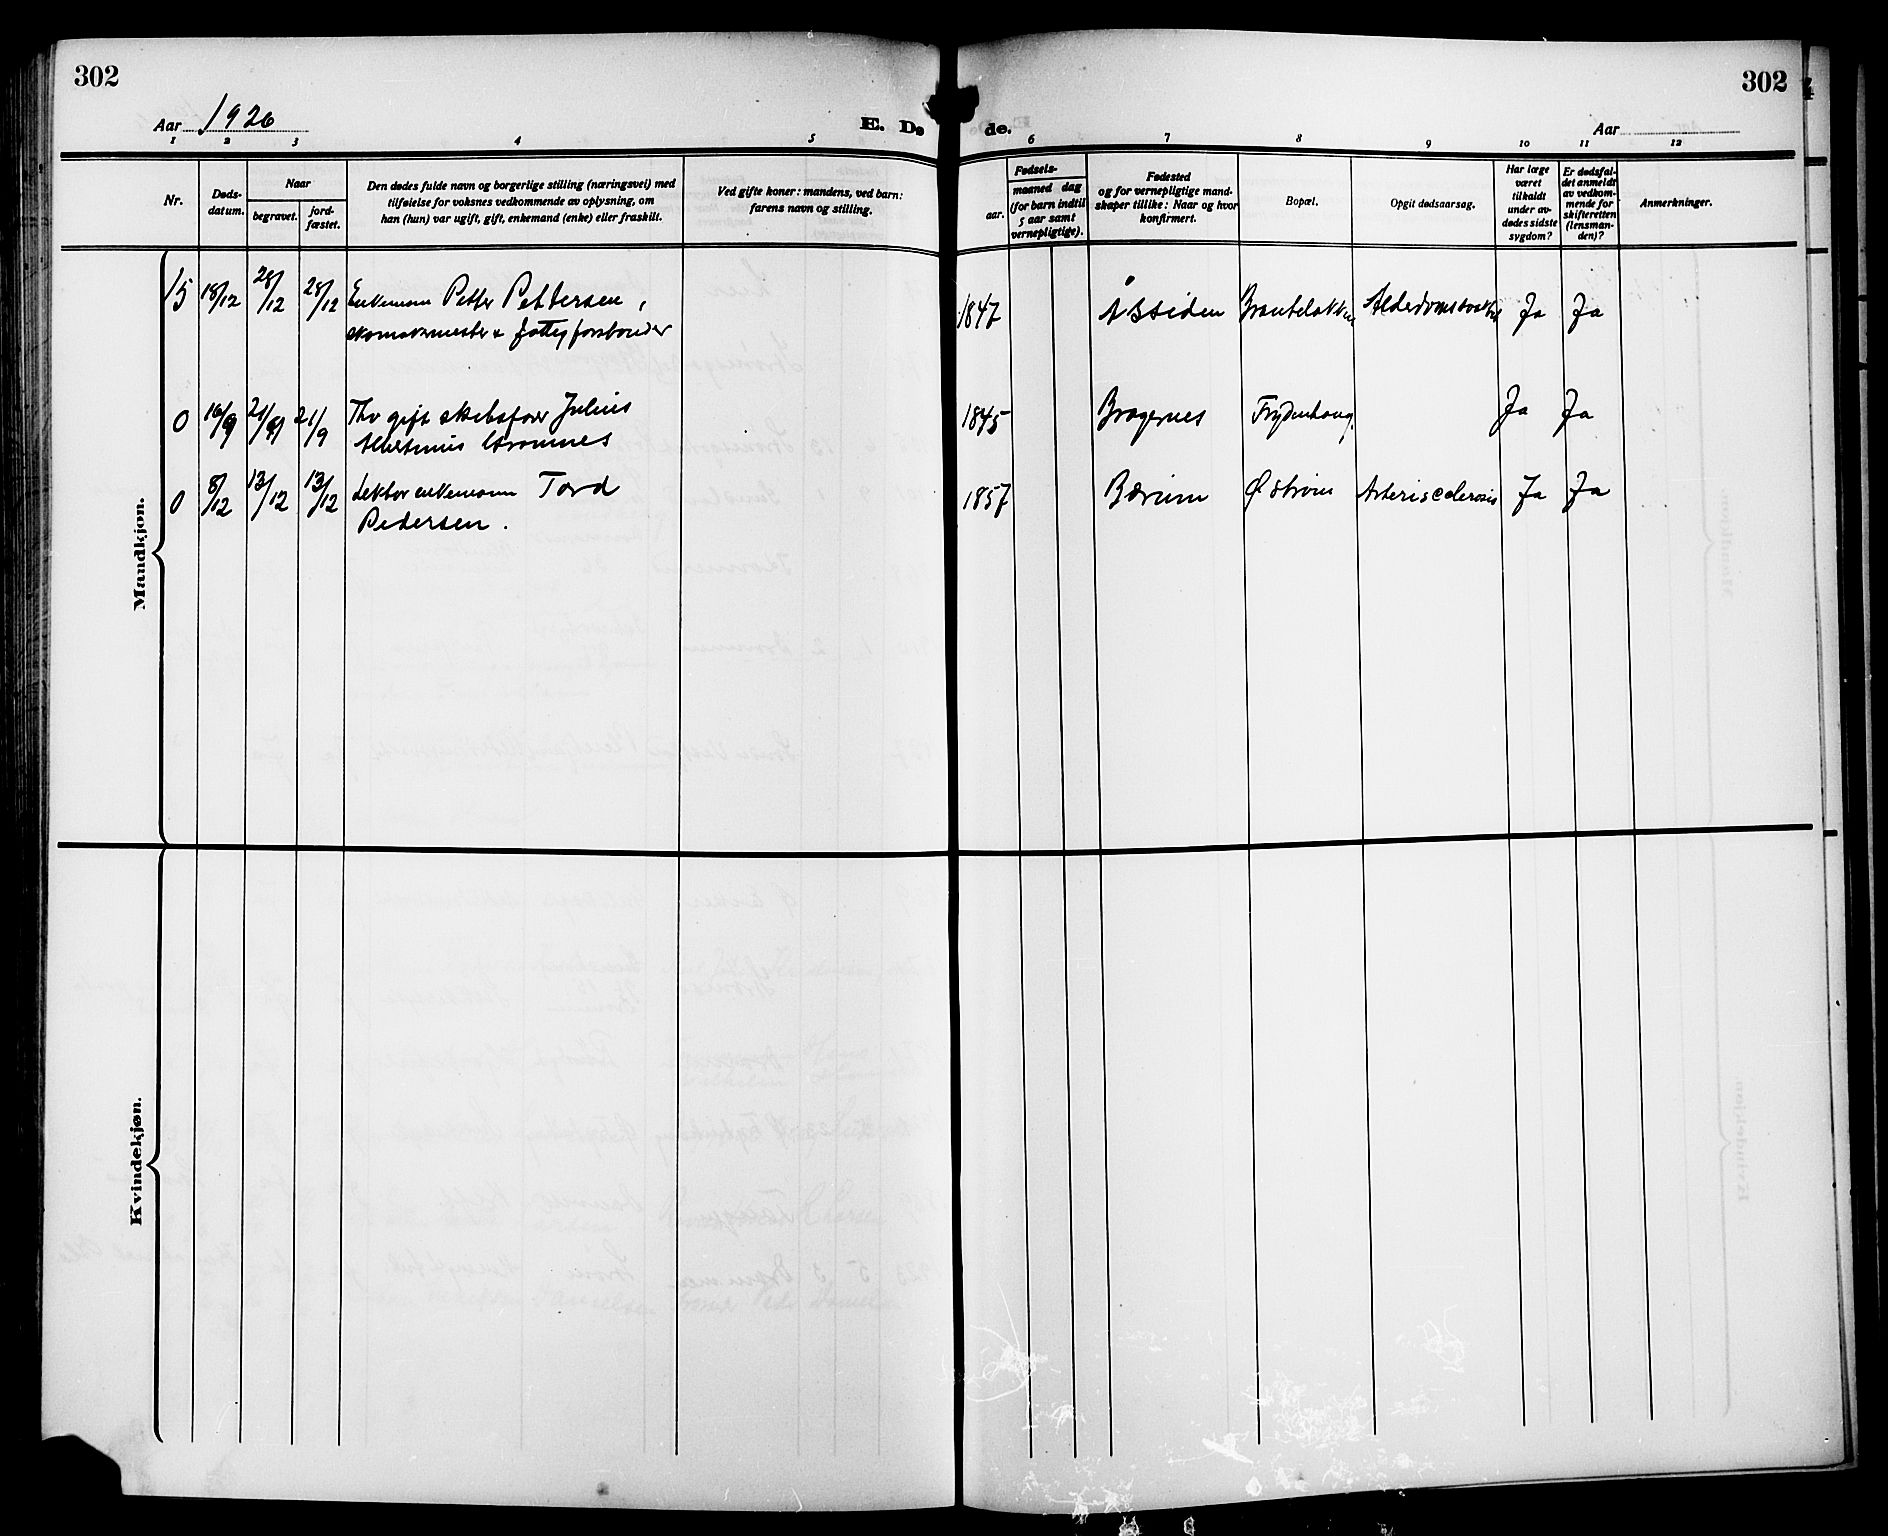 302
302
Aar 1926
E. Dø
de.
Aar
1 2 3 4 5 6 7 8 9 10 11 12
Nr.
Døds-
datum.
Naar
begravet.
jord-
fæstet.
Den dødes fulde navn og borgerlige stilling (næringsvei) med
tilføielse for voksnes vedkommende av oplysning, om
han (hun) var ugift, gift, enkemand (enke) eller fraskilt.
Ved gifte koner: mandens, ved barn:
farens navn og stilling.
Fødsels-
aar.
maaned dag
(for barn indtil
5 aar samt
vernepligtige).
Fødested
og for vernepligtige mand-
skaper tillike: Naar og hvor
konfirmert.
Bopæl.
Opgit dødsaarsag.
Har læge
været
tilkaldt
under av-
dødes sidste
sygdom?
Er dødsfal-
det anmeldt
av vedkom-
mende for
skifteretten
(lensman-
den)?
Anmerkninger.
Mandkjøn.
15 18/12 28/12 28/12 Enkemann Petter Pettersen, 1847 Åssiden Ja Ja
skomakermester &
0 16/9 21/9 21/9 gift Julius 1845 Bragernes Frydenhaug. Ja Ja
0 8/12 13/12 13/12 Lektor enkemann Tord 1857 Bærum Ø Strøm Ja Ja
Pedersen.
Kvindekjøn.